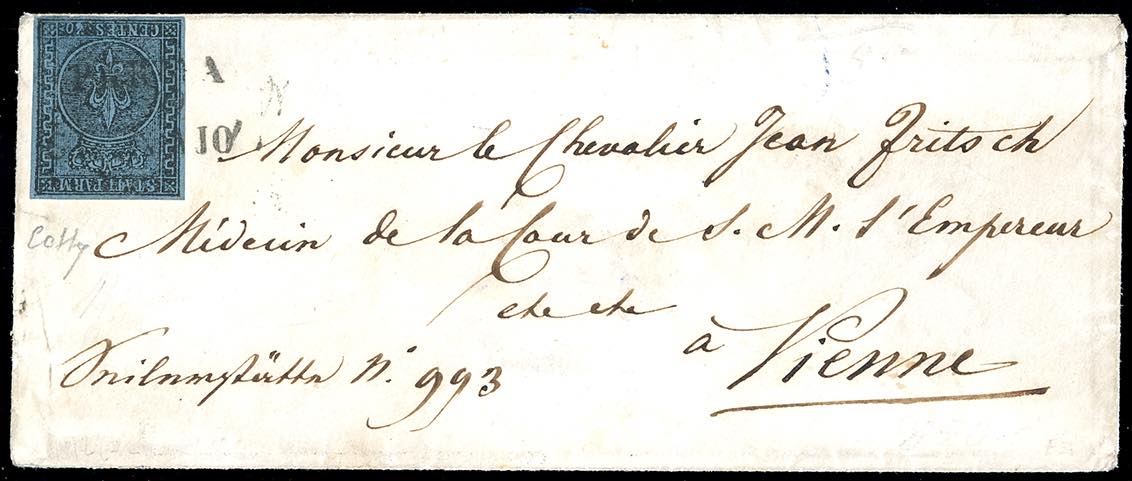 CENTES. 40
STATI PARM.
A
10
Monsieur le Chevalier Jean Fritsch
Médecin de la Cour de S. M. l'Empereur
etc etc
à Vienne
Seilerstätte N.º 993